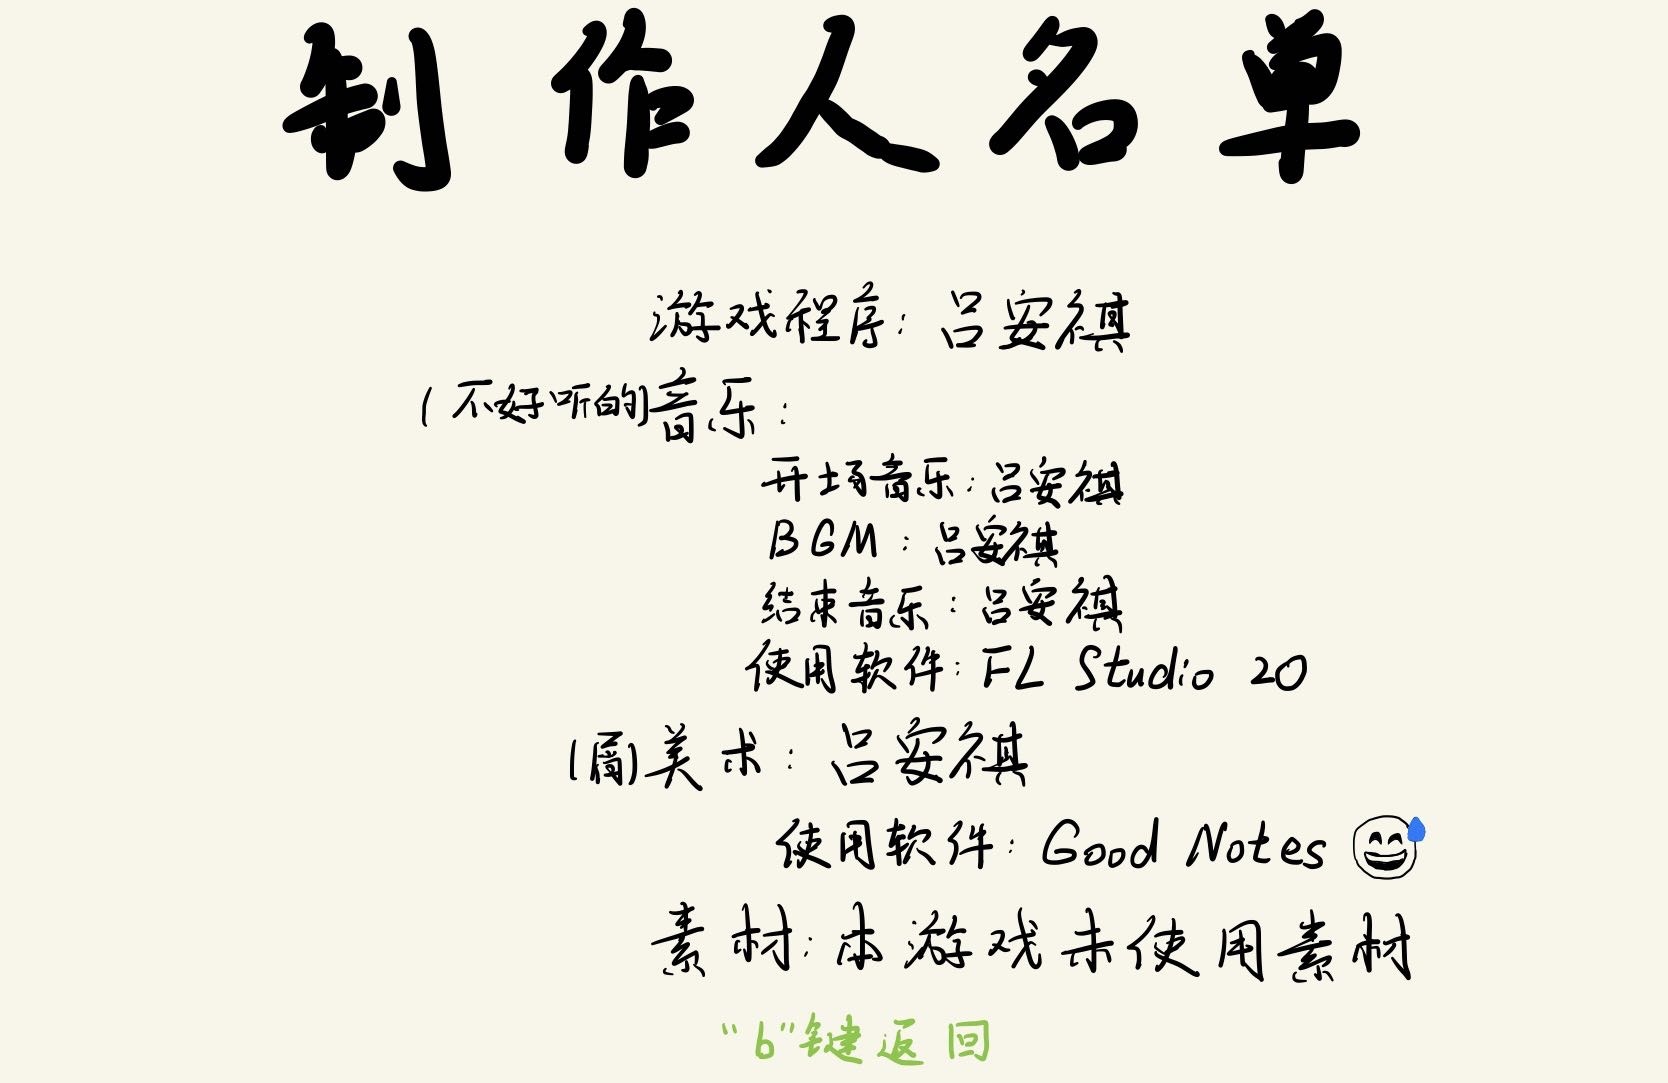 制作人名单
游戏程序：吕安祺
(不好听的)音乐：
开场音乐：吕安祺
BGM：吕安祺
结束音乐：吕安祺
使用软件：FL Studio 20
()美术：吕安祺
使用软件：Good Notes 😅
素材：本游戏未使用素材
“b”键返回